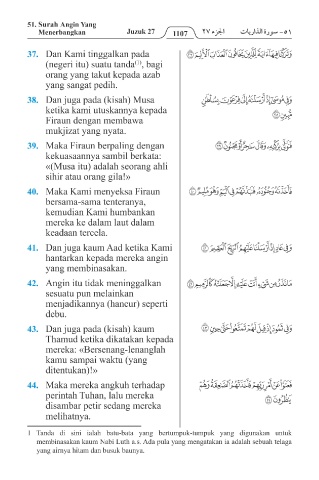 51. Surah Angin Yang
Menerbangkan Juzuk 27 1107 الجزء ٢٧ ٥١ - سورة الذاريات
37. Dan Kami tinggalkan pada
(negeri itu) suatu tanda(1), bagi
orang yang takut kepada azab
yang sangat pedih.
وَتَرَكْنَا فِيهَا ءَايَةً لِّلَّذِينَ يَخَافُونَ ٱلْعَذَابَ ٱلْأَلِيمَ ٣٧
38. Dan juga pada (kisah) Musa
ketika kami utuskannya kepada
Firaun dengan membawa
mukjizat yang nyata.
وَفِى مُوسَىٰٓ إِذْ أَرْسَلْنَٰهُ إِلَىٰ فِرْعَوْنَ بِسُلْطَٰنٍ
مُّبِينٍ ٣٨
39. Maka Firaun berpaling dengan
kekuasaannya sambil berkata:
«(Musa itu) adalah seorang ahli
sihir atau orang gila!»
فَتَوَلَّىٰ بِرُكْنِهِۦ وَقَالَ سَٰحِرٌ أَوْ مَجْنُونٌ ٣٩
40. Maka Kami menyeksa Firaun
bersama-sama tenteranya,
kemudian Kami humbankan
mereka ke dalam laut dalam
keadaan tercela.
فَأَخَذْنَٰهُ وَجُنُودَهُۥ فَنَبَذْنَٰهُمْ فِى ٱلْيَمِّ وَهُوَ مُلِيمٌ ٤٠
41. Dan juga kaum Aad ketika Kami
hantarkan kepada mereka angin
yang membinasakan.
وَفِى عَادٍ إِذْ أَرْسَلْنَا عَلَيْهِمُ ٱلرِّيحَ ٱلْعَقِيمَ ٤١
42. Angin itu tidak meninggalkan
sesuatu pun melainkan
menjadikannya (hancur) seperti
debu.
مَا تَذَرُ مِن شَىْءٍ أَتَتْ عَلَيْهِ إِلَّا جَعَلَتْهُ كَٱلرَّمِيمِ ٤٢
43. Dan juga pada (kisah) kaum
Thamud ketika dikatakan kepada
mereka: «Bersenang-lenanglah
kamu sampai waktu (yang
ditentukan)!»
وَفِى ثَمُودَ إِذْ قِيلَ لَهُمْ تَمَتَّعُوا۟ حَتَّىٰ حِينٍ ٤٣
44. Maka mereka angkuh terhadap
perintah Tuhan, lalu mereka
disambar petir sedang mereka
melihatnya.
فَعَتَوْا۟ عَنْ أَمْرِ رَبِّهِمْ فَأَخَذَتْهُمُ ٱلصَّٰعِقَةُ وَهُمْ
يَنظُرُونَ ٤٤
1 Tanda di sini ialah batu-bata yang bertumpuk-tumpuk yang digunakan untuk
membinasakan kaum Nabi Luth a.s. Ada pula yang mengatakan ia adalah sebuah telaga
yang airnya hitam dan busuk baunya.